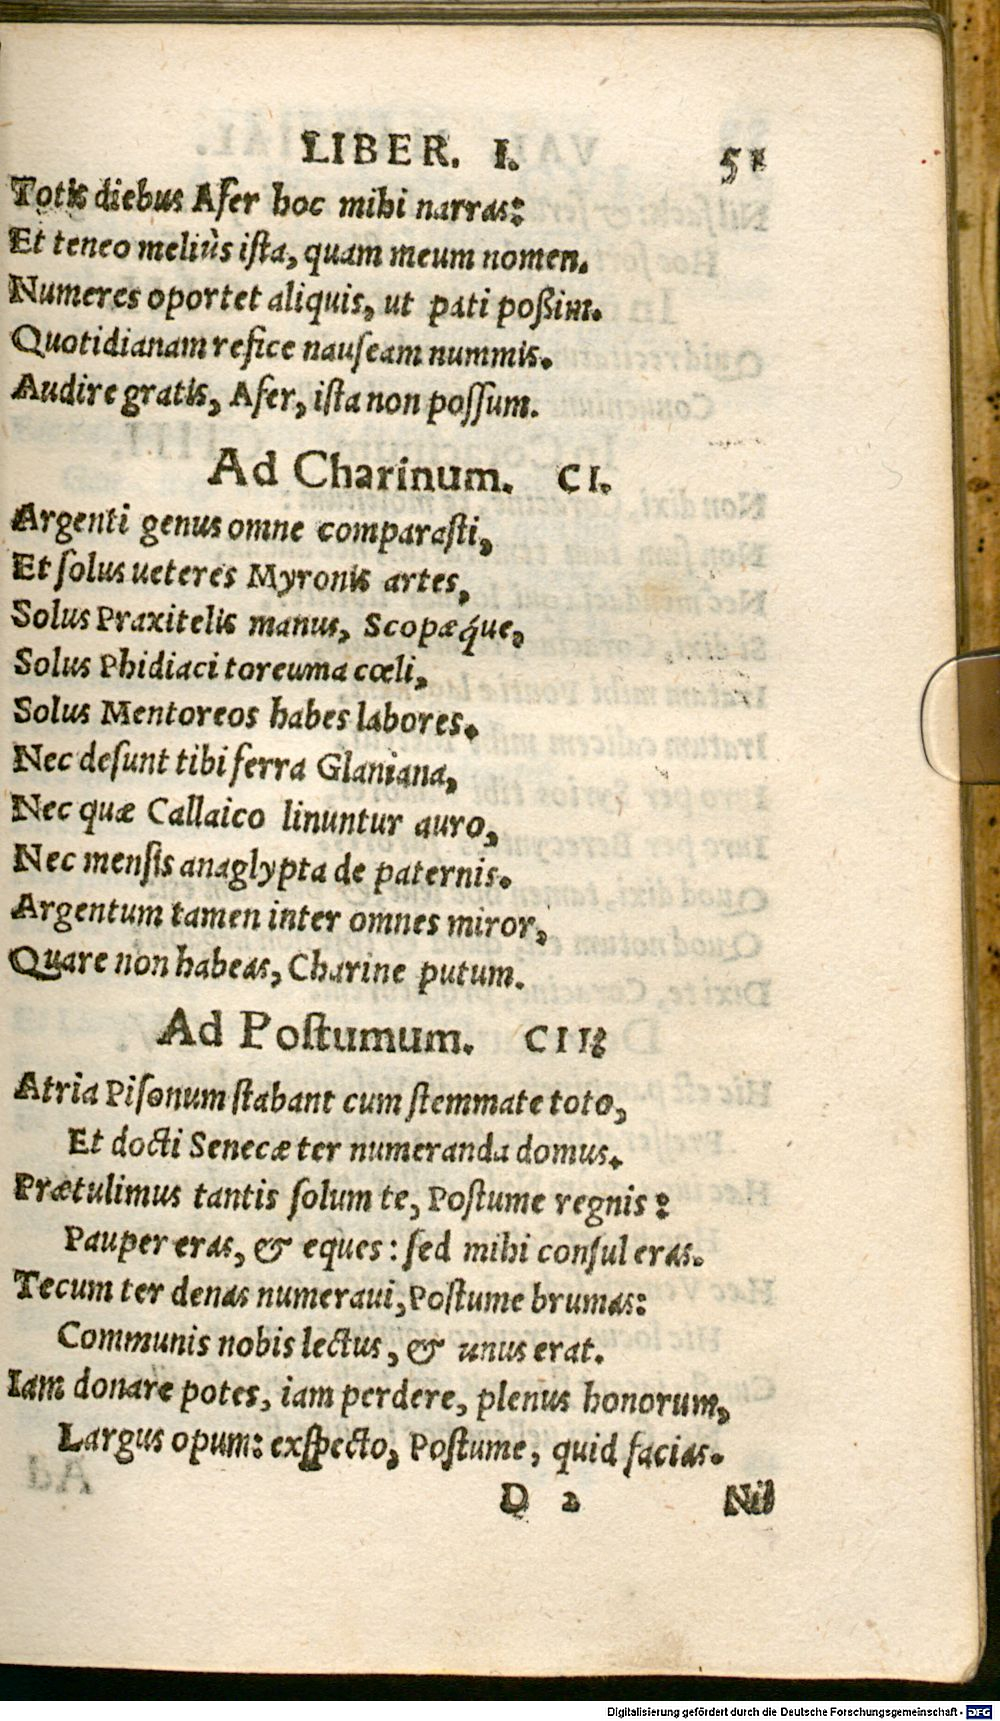 LIBER. I. 51
Totis diebus Afer hoc mihi narras:
Et teneo meliùs ista, quam meum nomen.
Numeres oportet aliquis, ut pati poßim.
Quotidianam refice nauseam nummis.
Audire gratis, Afer, ista non possum.
Ad Charinum. CI.
Argenti genus omne comparasti,
Et solus ueteres Myronis artes,
Solus Praxitelis manus, Scopæq́ue,
Solus Phidiaci toreuma cœli,
Solus Mentoreos habes labores.
Nec desunt tibi ferra Glaniana,
Nec quæ Callaico linuntur auro,
Nec mensis anaglypta de paternis.
Argentum tamen inter omnes miror,
Quare non habeas, Charine putum.
Ad Postumum. CII.
Atria Pisonum stabant cum stemmate toto,
Et docti Senecæ ter numeranda domus.
Prætulimus tantis solum te, Postume regnis:
Pauper eras, & eques: sed mihi consul eras.
Tecum ter denas numeraui, Postume brumas:
Communis nobis lectus, & unus erat.
Iam donare potes, iam perdere, plenus honorum,
Largus opum: exspecto, Postume, quid facias.
D 2 Nil
Digitalisierung gefördert durch die Deutsche Forschungsgemeinschaft - DFG